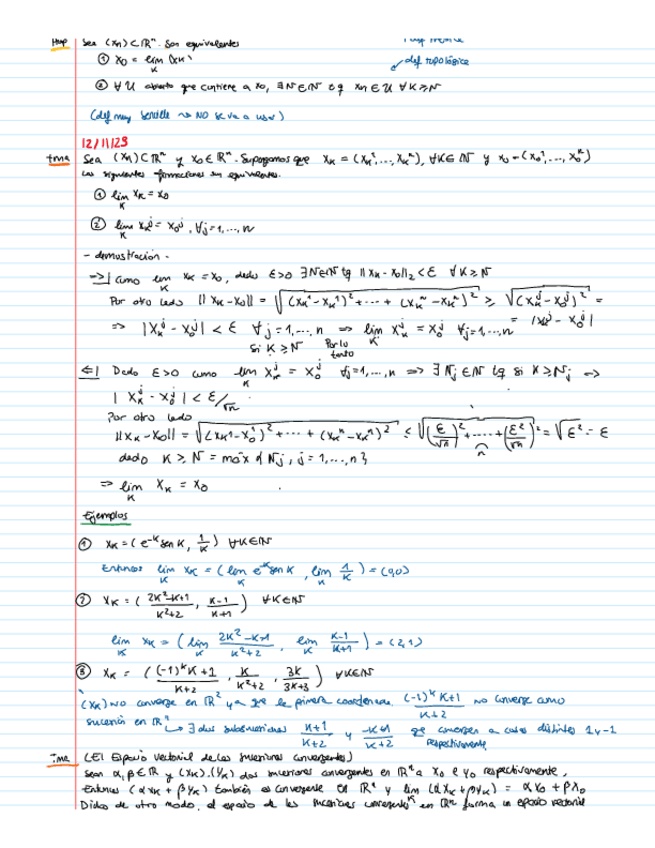 Sea (xₙ) ⊂ ℝⁿ. Son equivalentes
① x₀ = lim_K (xK)
def topológica
② ∀ U abierto que contiene a x₀, ∃N∈ℕ tq xₖ∈U ∀K≥N
(def muy sencilla ⇝ NO se va a usar)
12/11/23
tma Sea (xₙ)⊂ℝⁿ y x₀∈ℝⁿ. Supongamos que xₖ = (xₖ¹,...,xₖⁿ), ∀K∈ℕ y x₀=(x₀¹,...,x₀ⁿ)
Las siguientes afirmaciones son equivalentes.
① lim_K xₖ = x₀
② lim_K xₖʲ = x₀ʲ, ∀j=1,...,n
- demostración -
⇒| Como lim_K xₖ = x₀, dado ε>0 ∃N∈ℕ tq ||xₖ-x₀||₂<ε ∀K≥N
Por otro lado ||xₖ-x₀|| = √((xₖ¹-xₖ¹)²+...+(xₖⁿ-xₖⁿ)²) ≥ √((xₖʲ-x₀ʲ)²) =
= |xₖʲ - x₀ʲ|
⇒ |xₖʲ - x₀ʲ| < ε ∀j=1,...,n ⇒ lim_K xₖʲ = x₀ʲ ∀j=1,...,n
si K≥N Por lo tanto
⇐| Dado ε>0 como lim_K xₖʲ = x₀ʲ ∀j=1,...,n ⇒ ∃Nⱼ∈ℕ tq si K≥Nⱼ ⇒
|xₖʲ - x₀ʲ| < ε/√n
Por otro lado
||xₖ-x₀|| = √((xₖ¹-x₀¹)²+...+(xₖⁿ-xₖⁿ)²) ≤ √((ε/√n)²+...+(ε²/√n)²) = √ε² = ε
n
dado K ≥ N = máx{Nⱼ, j=1,...,n}
⇒ lim_K xₖ = x₀
Ejemplos
① xₖ = (e⁻ᴷ sen K, 1/K) ∀K∈ℕ
Entonces lim_K xₖ = (lim_K e⁻ᴷ sen K, lim_K 1/K) = (0,0)
② xₖ = ((2K²-K+1)/(K²+2), (K-1)/(K+1)) ∀K∈ℕ
lim_K xₖ = (lim_K (2K²-K+1)/(K²+2), lim_K (K-1)/(K+1)) = (2,1)
③ xₖ = (((-1)ᴷK+1)/(K+2), K/(K²+2), 3K/(3K+3)) ∀K∈ℕ
(xₖ) NO converge en ℝ² ya que la primera coordenada ((-1)ᴷK+1)/(K+2) no converge como
sucesión en ℝ ↳ ∃ dos subsucesiones (K+1)/(K+2) y (-K+1)/(K+2) que convergen a cosas distintas 1 y -1
respectivamente
Tma (El Espacio vectorial de las sucesiones convergentes)
Sean α,β∈ℝ y (xₖ),(yₖ) dos sucesiones convergentes en ℝⁿ a x₀ e y₀ respectivamente,
Entonces (αxₖ+βyₖ) también es convergente en ℝⁿ y lim_K (αxₖ+βyₖ) = αx₀+βx₀
Dicho de otro modo, el espacio de las sucesiones convergentes en ℝⁿ forma un espacio vectorial